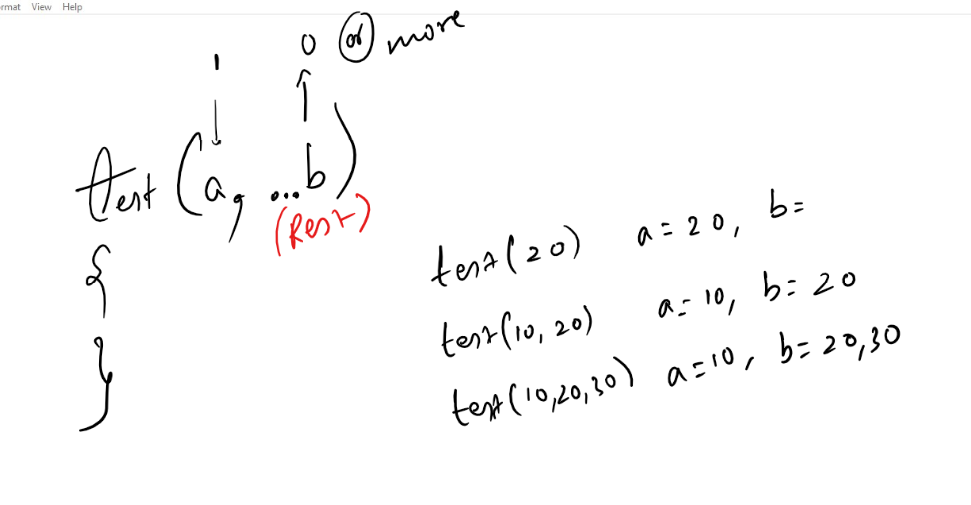 rmat View Help
1 0 or more
test (a, ...b)
(Rest)
{
}
test(20) a = 20, b=
test(10, 20) a = 10, b= 20
test(10,20,30) a=10, b= 20,30